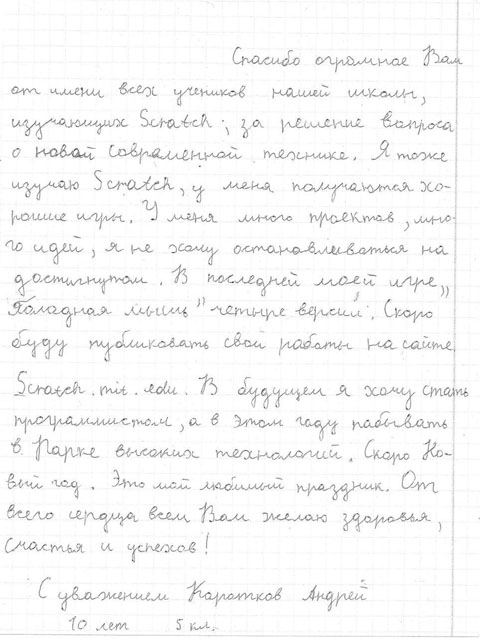 Спасибо огромное Вам
от имени всех учеников нашей школы,
изучающих Scratch, за решение вопроса
о новой современной технике. Я тоже
изучаю Scratch, у меня получаются хо-
рошие игры. У меня много проектов, мно-
го идей, я не хочу останавливаться на
достигнутом. В последней моей игре „
Голодная мышь" четыре версии. Скоро
буду публиковать свои работы на сайте
Scratch.mit.edu. В будущем я хочу стать
программистом, а в этом году побывать
в Парке высоких технологий. Скоро Но-
вый год. Это мой любимый праздник. От
всего сердца всем Вам желаю здоровья,
счастья и успехов!
С уважением Коротков Андрей
10 лет 5 кл.